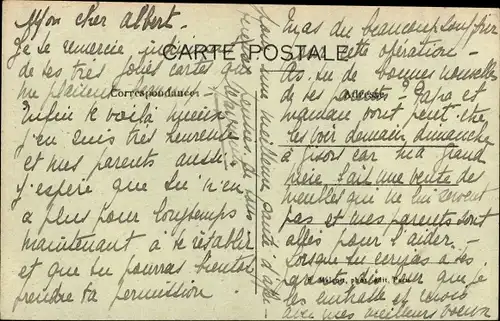 Mon cher Albert.
Je te remercie
de tes très jolies cartes qui
me
Enfin te voilà mieux
j'en suis très heureuse
et mes parents aussi.
J'espère que tu n'en
a plus pour longtemps
maintenant à te rétablir
et que tu pourras bientôt
prendre ta permission
CARTE POSTALE
Correspondance
ADRESSE
pour une meilleure santé
as du beaucoup souffrir
cette opération -
As tu de bonnes nouvelles
de tes parents? Papa et
maman vont peut être
les voir demain dimanche
à Gisors car ma grand
mère fait une vente des
meubles qui ne lui servent
pas et mes parents sont
allés pour l'aider. -
Lorsque tu écriras à tes
parents dis leur que je
les embrasse et reçois
avec mes meilleurs voeux